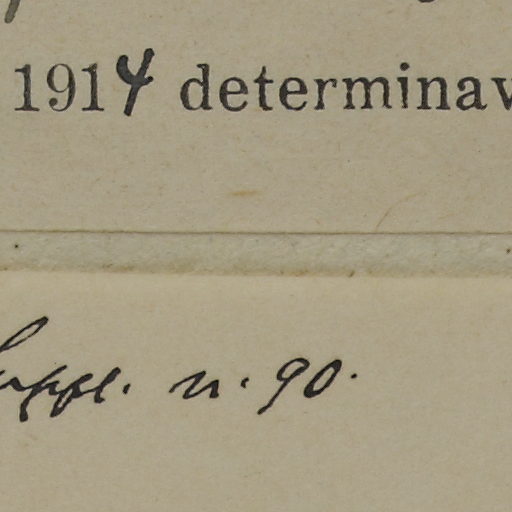 1914 determinav
Suppl. n. 90.